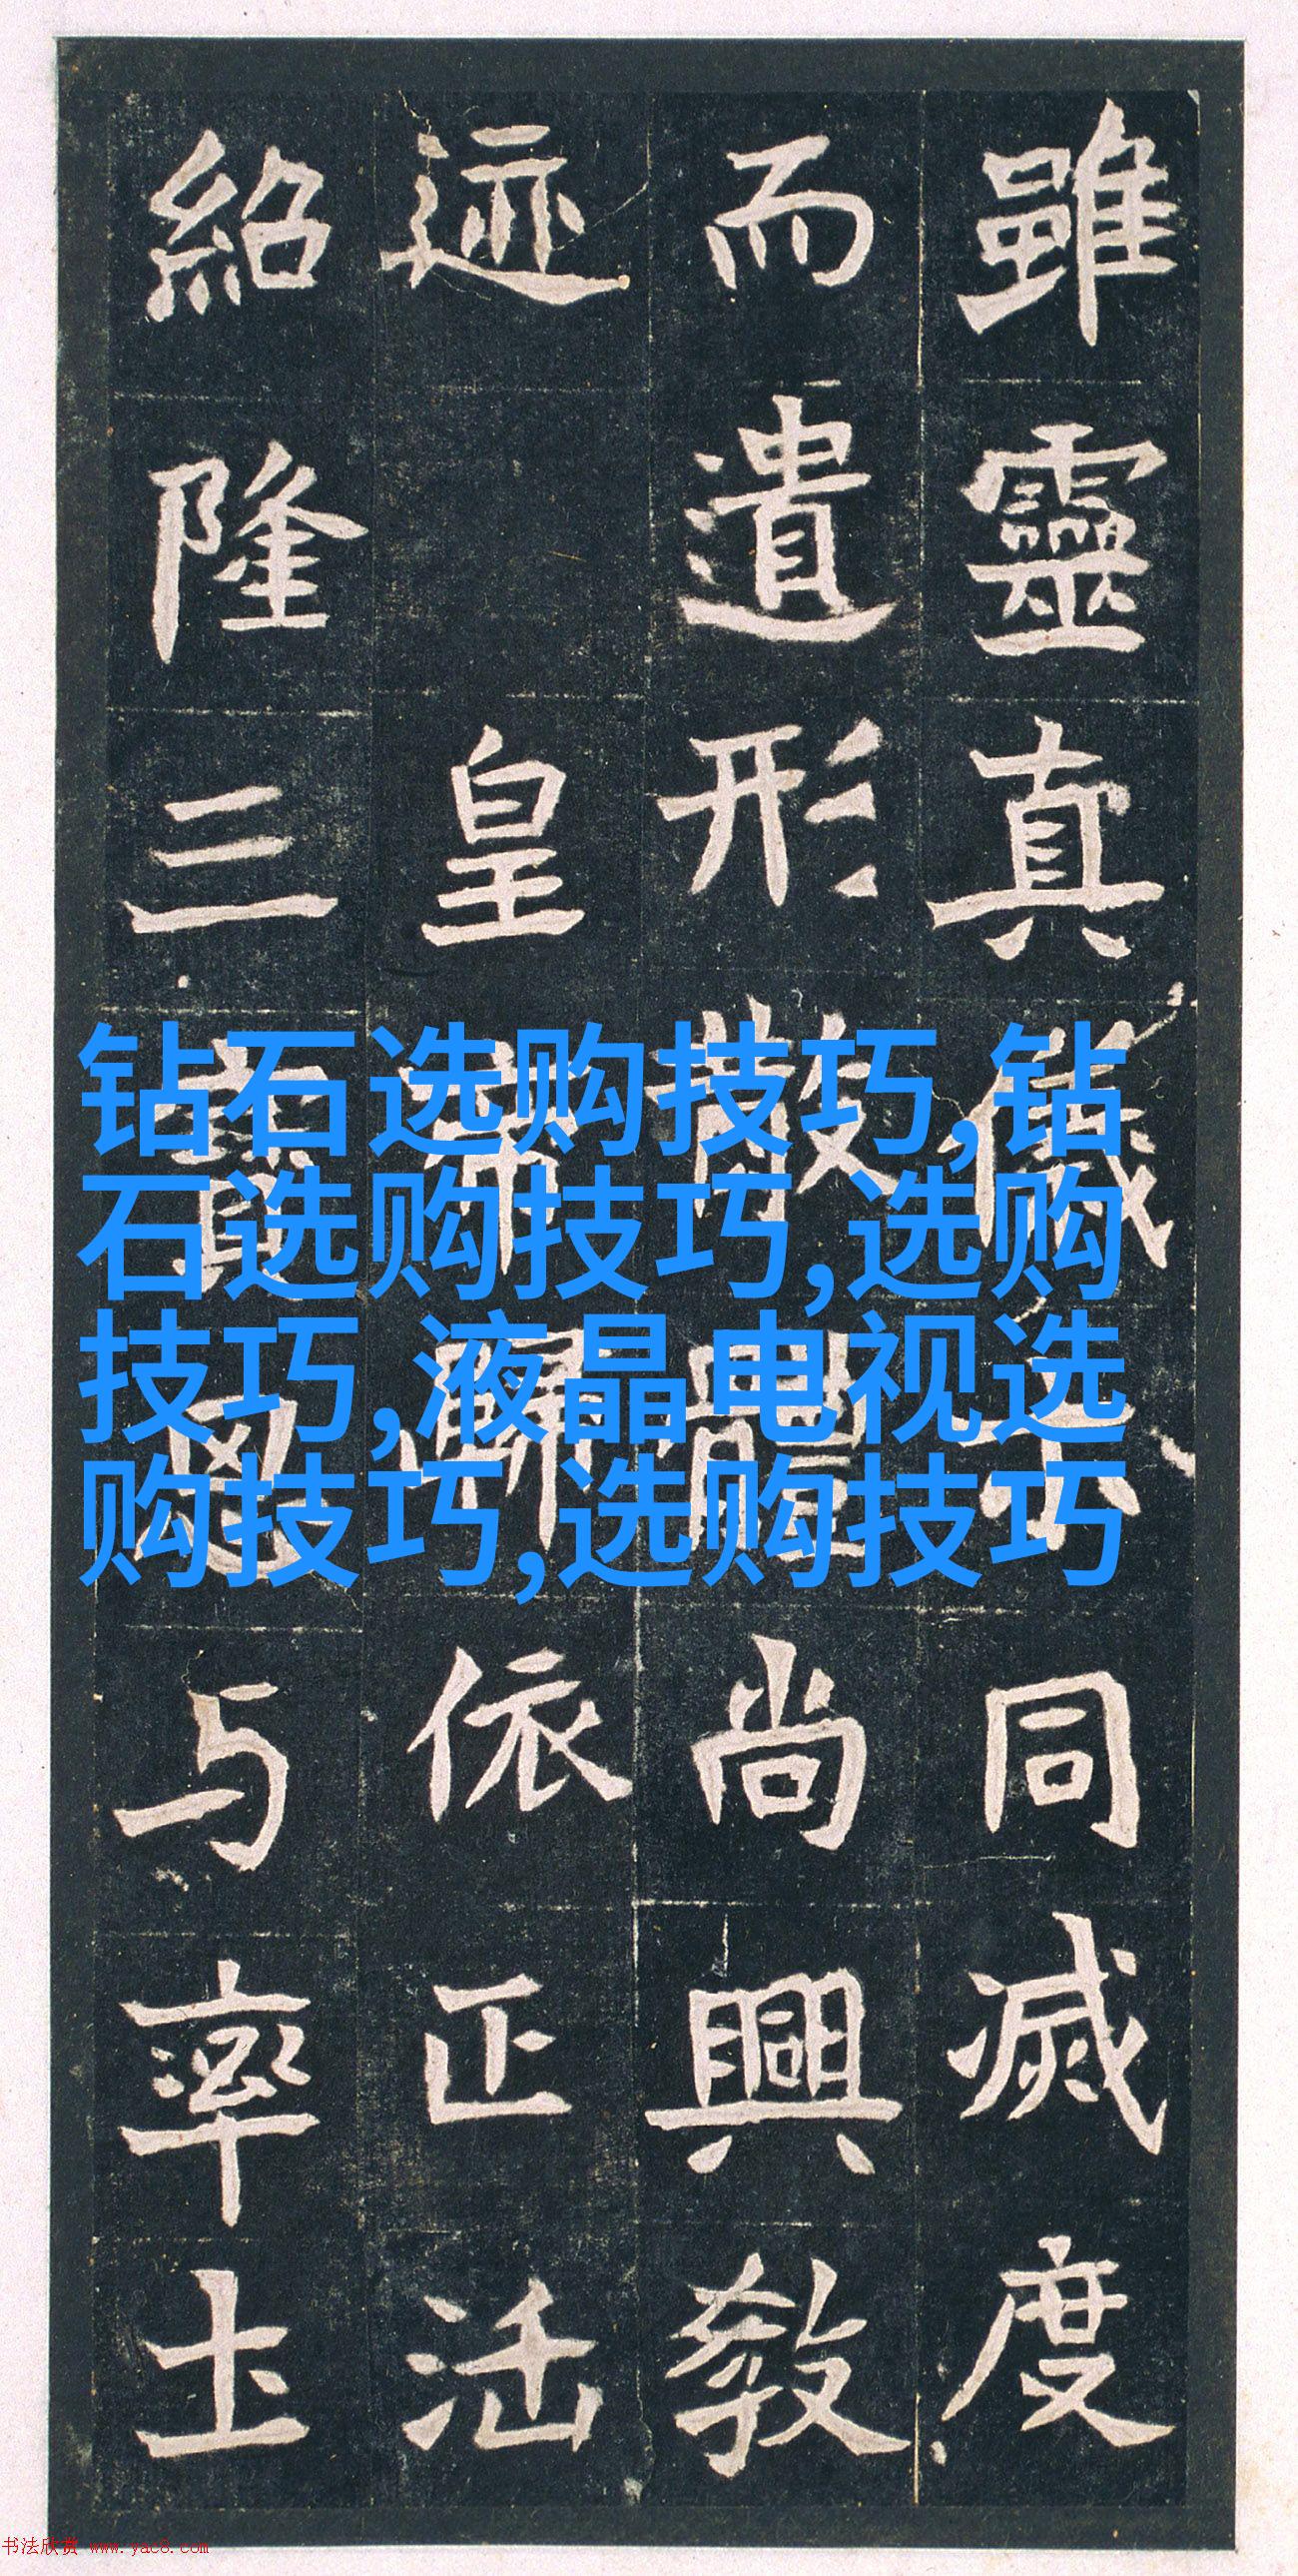 雖靈真儀同滅度
而遺形散體尚興教
迹皇帝歸依正法
紹隆三寶思与率土
钻石选购技巧,钻
石选购技巧,选购
技巧,液晶电视选
购技巧,选购技巧
书法欣赏 www.yac8.com